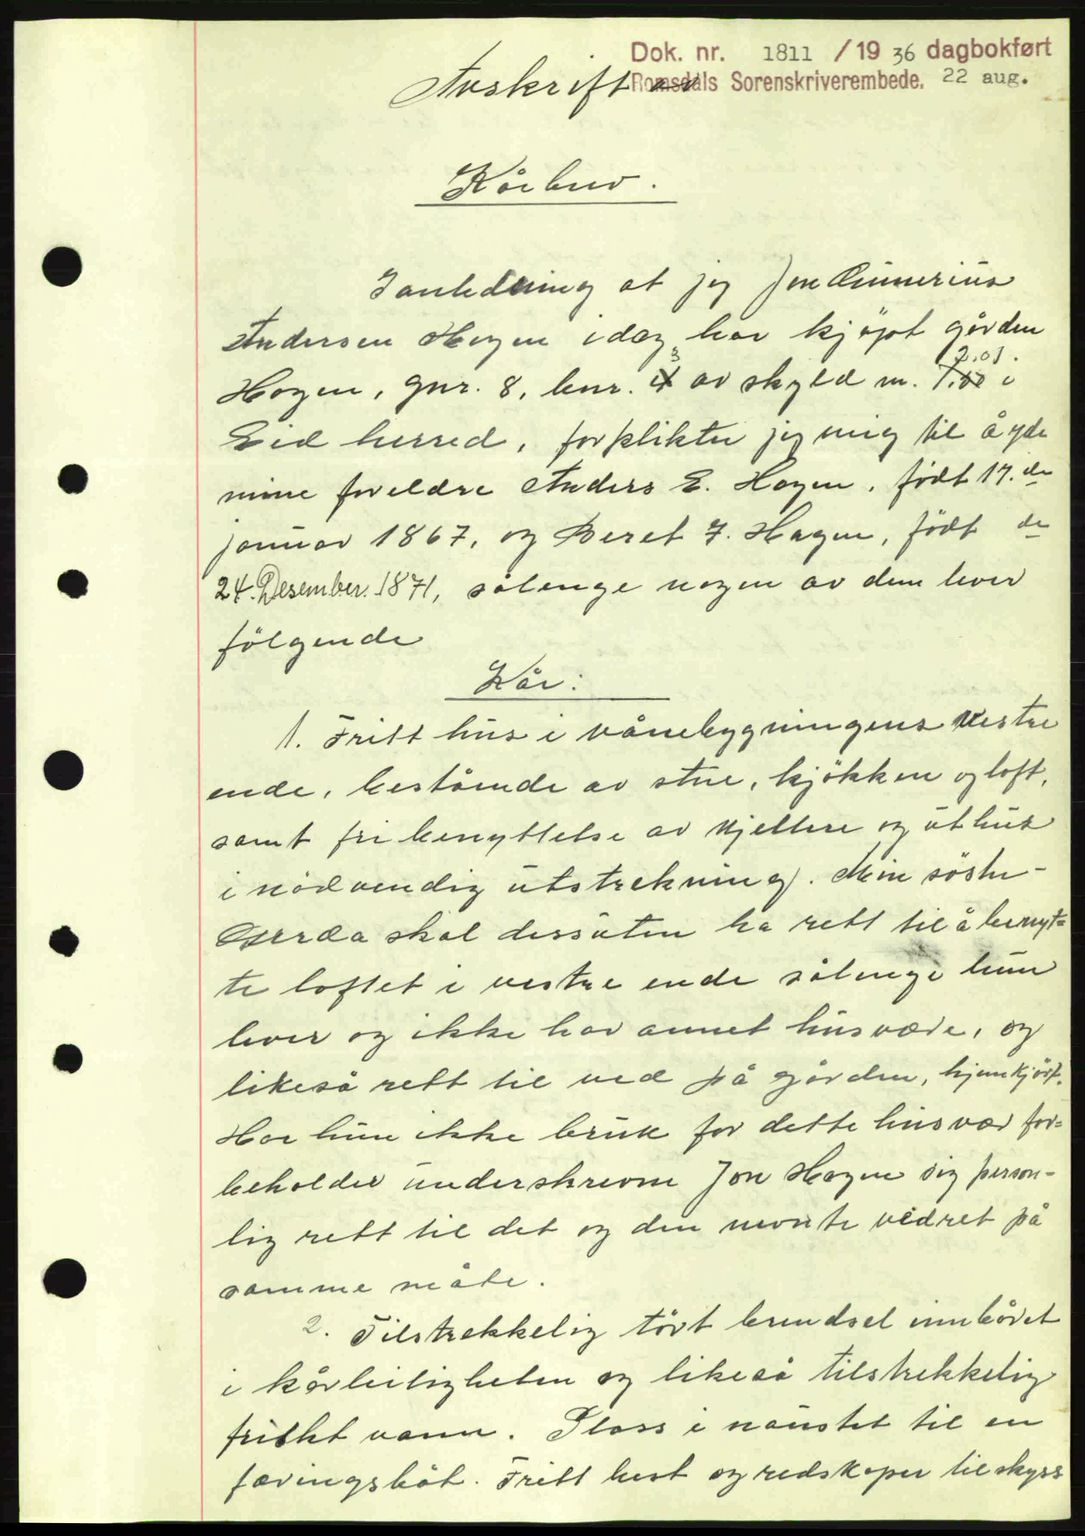 Dok. nr. 1811 / 19 36 dagbokført
Romsdals Sorenskriverembede. 22 aug.
Avskrift av
Kårbrev.
I anledning at jeg Jon Gunnerius
Andersen Hagen idag har kjøpt gården
Hagen, gnr. 8, bnr. 3 av skyld m. 2.01. i
Eid herred, forplikter jeg mig til å yde
mine foreldre Anders E. Hagen, født 17. de
januar 1867, og Beret J. Hagen, født de
24. Desember. 1871, sålenge nogen av dem lever
følgende
Kår:
1. Fritt hus i vånebygningens vestre
ende, bestående av stue, kjøkken og loft,
samt fri benyttelse av kjellere og uthus
i nødvendig utstrekning. Min søster-
Gerda skal dessuten ha rett til å benyt=
te loftet i vestre ende sålenge hun
lever og ikke har annet husvære, og
likeså rett til ved på gården, hjemkjørt.
Har hun ikke bruk for dette husvær for=
beholder underskrevne Jon Hagen sig person-
lig rett til det og den nevnte vedret på
samme måte.
2. Tilstrekkelig tørt brendsel innbåret
i kårleiligheten og likeså tilstrekkelig
friskt vann. Plass i naustet til en
færingsbåt. Fritt hest og redskaper til skyss